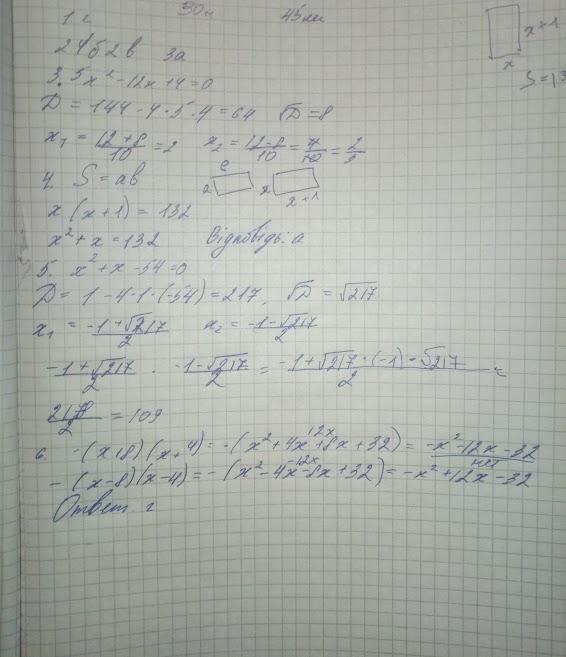 1. г
30 н 45 км
2 4 б 2 в 3а
3. 5x² - 12x + 4 = 0
D = 144 - 4 · 5 · 4 = 64 √D = 8
x₁ = (12 + 8)/10 = 2 x₂ = (12 - 8)/10 = 4/10 = 2/5
4. S = ab
a
x x+1
x (x+1) = 132
x² + x = 132 Відповідь: а
5. x² + x - 54 = 0
D = 1 - 4 · 1 · (-54) = 217, √D = √217
x₁ = (-1 + √217)/2 x₂ = (-1 - √217)/2
(-1 + √217)/2 · (-1 - √217)/2 = (-1 + √217 · (-1) - √217)/2 =
218/2 = 109
6. -(x+8)(x+4) = -(x² + 4x + 8x + 32) = -x² - 12x - 32
12x нет
-(x-8)(x-4) = -(x² - 4x - 8x + 32) = -x² + 12x - 32
-12x
Ответ г
x+1
x